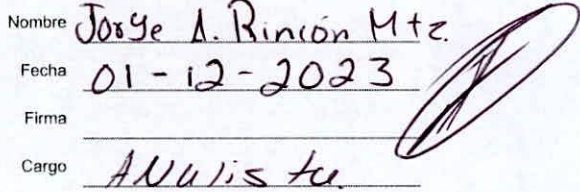 Nombre Jorge A. Rincón Mtz.
Fecha 01-12-2023
Firma
Cargo ANalista